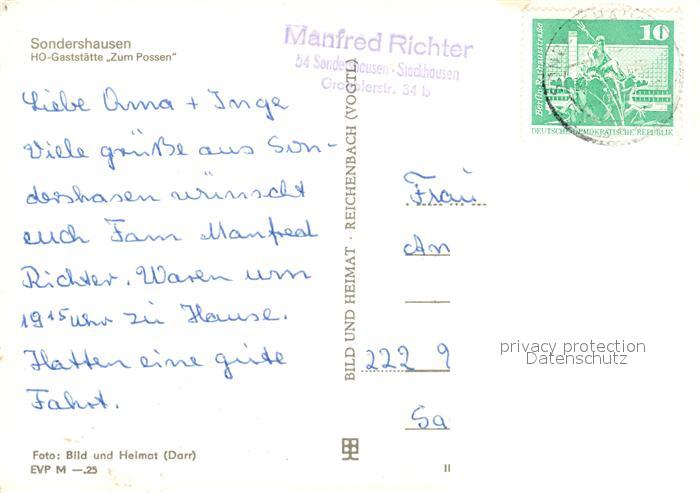 Sondershausen
HO-Gaststätte „Zum Possen"
Manfred Richter
54 Sondershausen - Stockhausen
34 b
10
Berlin, Rathausstraße
DEUTSCHE DEMOKRATISCHE REPUBLIK
Liebe Oma + Inge
Viele grüße aus Son-
dershasen wünscht
euch Fam Manfred
Richter. Waren um
19 15 Uhr zu Hause.
Hatten eine gute
Fahrt.
Foto: Bild und Heimat (Darr)
EVP M —.25
BILD UND HEIMAT · REICHENBACH (VOGTL)
Frau
An
222 9
Sa
privacy protection
Datenschutz